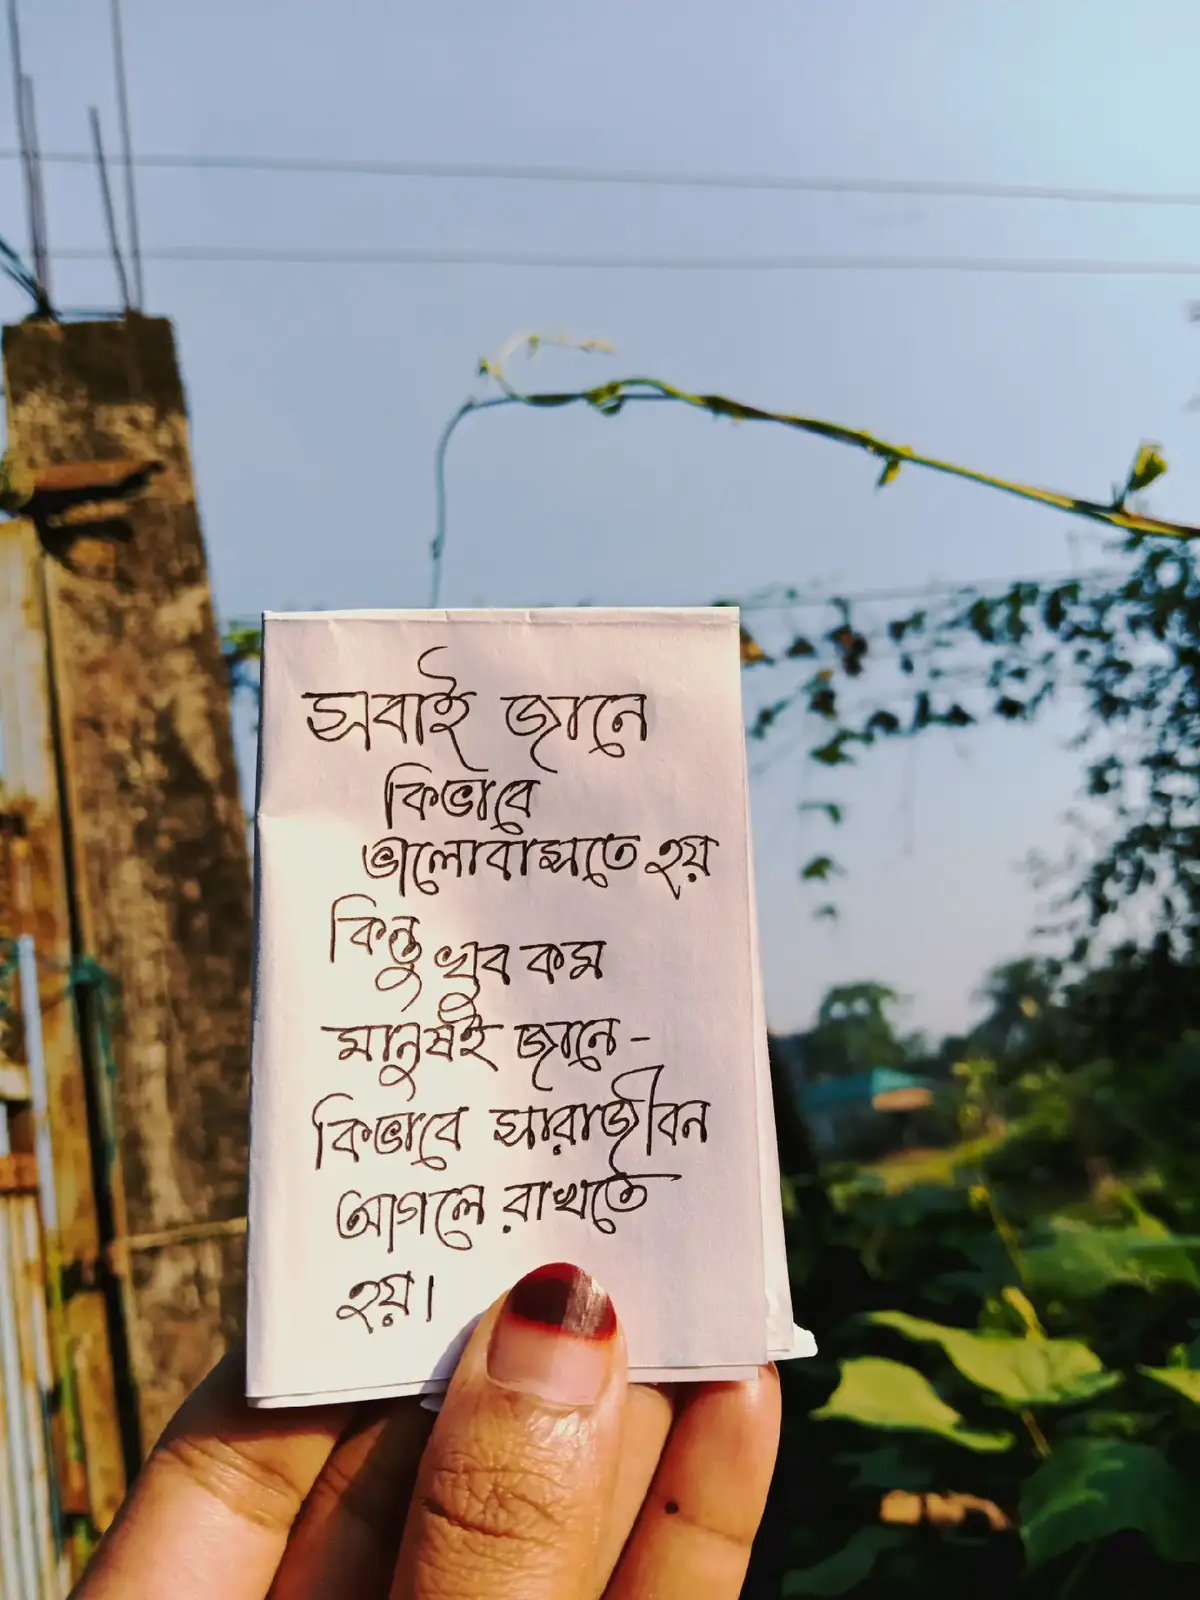 সবাই জানে
কিভাবে
ভালোবাসতে হয়
কিন্তু খুব কম
মানুষই জানে-
কিভাবে সারাজীবন
আগলে রাখতে
হয়।